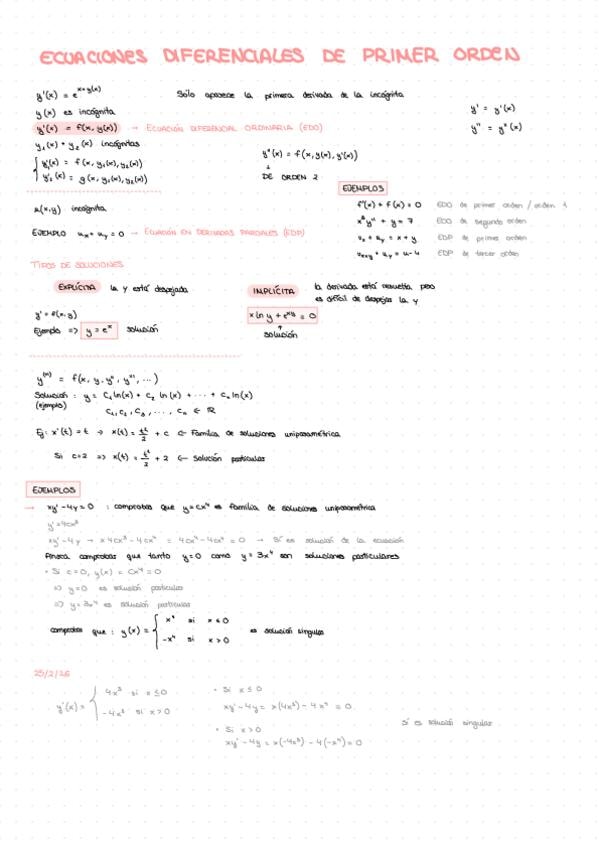 ECUACIONES DIFERENCIALES DE PRIMER ORDEN
y'(x) = e^(x+y(x)) Sólo aparece la primera derivada de la incógnita
y(x) es incógnita
y' = y'(x)
y'' = y''(x)
y'(x) = f(x, y(x)) → ECUACIÓN DIFERENCIAL ORDINARIA (EDO)
y₁(x) + y₂(x) incógnitas
{ y'₁(x) = f(x, y₁(x), y₂(x))
y'₂(x) = g(x, y₁(x), y₂(x))
y''(x) = f(x, y(x), y'(x))
↓
DE ORDEN 2
u(x,y) incógnita
EJEMPLO uₓ + u_y = 0 → ECUACIÓN EN DERIVADAS PARCIALES (EDP)
EJEMPLOS
EDO de primer orden / orden 1
EDO de segundo orden
EDP de primer orden
EDP de tercer orden
TIPOS DE SOLUCIONES
EXPLÍCITA la y está despejada
y' = f(x,y)
Ejemplo => y = eˣ solución
IMPLÍCITA la derivada está resuelta pero
es difícil de despejar la y
x ln y + e^(xy) = 0
↑
solución
y⁽ⁿ⁾ = f(x, y, y'', y''', ...)
Solución : y = C₁ ln(x) + C₂ ln(x) + ... + Cₙ ln(x)
(ejemplo) C₁, C₂, C₃, ..., Cₙ ∈ ℝ
Ej: x'(t) = t → x(t) = t²/2 + C ← Familia de soluciones uniparamétrica
Si c=2 => x(t) = t²/2 + 2 ← Solución particular
EJEMPLOS
→ xy' - 4y = 0 : comprobar que y = cx⁴ es familia de soluciones uniparamétrica
y' = 4cx³
xy' - 4y → x4cx³ - 4cx⁴ = 4cx⁴ - 4cx⁴ = 0 → Sí es solución de la ecuación
Ahora comprobar que tanto y=0 como y = 3x⁴ son soluciones particulares
· Si c=0, y(x) = Cx⁴ = 0
=> y=0 es solución particular
=> y = 3x⁴ es solución particular
comprobar que : y(x) = { x⁴ si x ≤ 0
-x⁴ si x > 0
es solución singular
25/2/26
y'(x) = { 4x³ si x ≤ 0
-4x³ si x > 0
· Si x ≤ 0
xy' - 4y = x(4x³) - 4x⁴ = 0
· Si x > 0
xy' - 4y = x(-4x³) - 4(-x⁴) = 0
Sí es solución singular